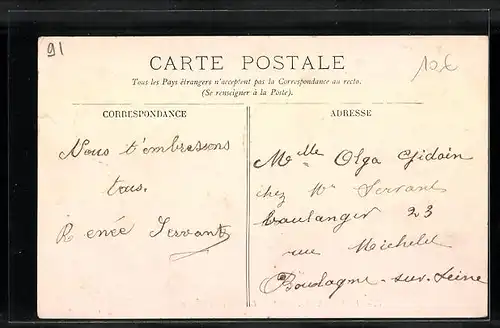 91
CARTE POSTALE
10€
Tous les Pays étrangers n'acceptent pas la Correspondance au recto.
(Se renseigner à la Poste).
CORRESPONDANCE
Nous t'embrassons
tous.
Renée Servant
ADRESSE
Melle Olga Gidoin
chez Mr Servant
boulanger 23
rue Michelet
Boulogne-sur-Seine